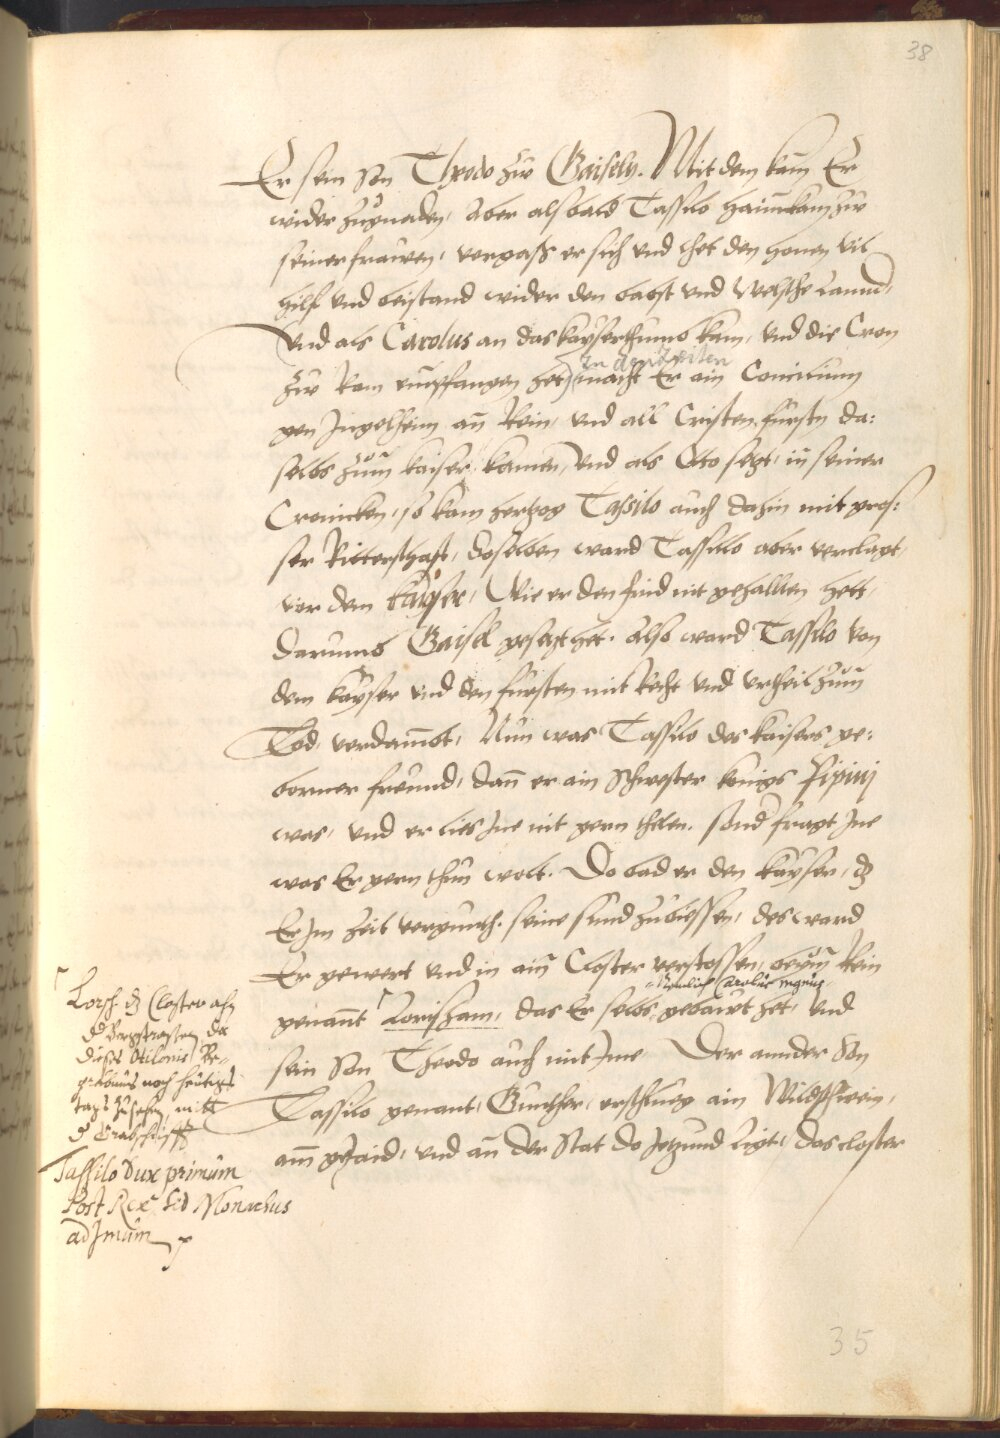 38
Er sein Son Theodo zw Gaiseln. Mit dem kam Er
wider zu gnaden, Aber alsbald Tassilo haimkam zw
seiner frawen, vergaß er sich vnd thet den Hunen vil
hilf vnd beistand wider den babst vnd Welsche Lannd,
Vnd als Carolus an das kayserthumb kam, vnd die Cron
zw Rom empfangen het, macht Er ain Concilium
In den Zeiten
gen Ingelheim an Rein, vnd all Cristen fürstn da:
selbs zum kaiser kamen, vnd als Otto setzt, in seiner
Cronicken, so kam hertzog Tassilo auch dahin mit gros:
ser Ritterschaft, doselben ward Tassilo aber verclagt,
vor dem kayser, Wie er den frid nit gehallten hett,
darumb Gaisel gesetzt het. Also ward Tassilo von
dem kayser vnd den fürsten mit Recht vnd vrtheil zum
Tod, verdambt, Nun was Tassilo des kaisers ge:
borner freund, dann er ain Schwester konigs Pipinj
was, vnd er lies Ine nit gern thöten, sonnd fragt Ine
was Er gern thun wolt. Do bad er den kayser, dz
Er Im Zeit vergunth, seine sünd zubiessen, des ward
Er gewert vnd in ain Closter verstossen, beym Rein
genannt Lorishaim, das Er selbs gebawt het, vnd
Nemlich Carolus magnus
sein Son Theodo auch mit Ime. Der annder Son
Tassilo genant, Gunther, erschlueg ain Wildschwein,
am gejaid, vnd an der Stat do Jetzund Ligt, das closter
Lorsch dz Closter ahn
d Bergstrassen, da
dises Otilonis Be-
grebnus noch heutigs
tags zusehen, mitt
d Grabschrifft
Tassilo Dux primum
Post Rex sed Monachus
ad Imum
35